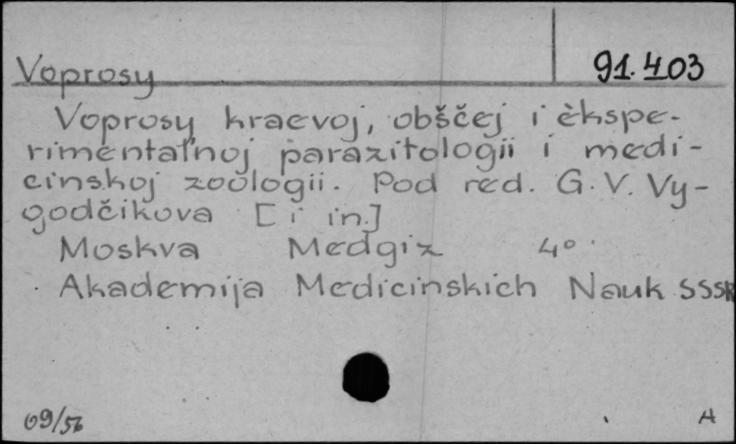 Voprosy 91.403
Voprosy kraevoj, obščej i èkspe-
rimental'noj parazitologii i medi-
cinskoj zoologii. Pod red. G. V. Vy-
godčikova [i in.]
Moskva Medgiz 4°
Akademija Medicinskich Nauk SSSR
09/56 A